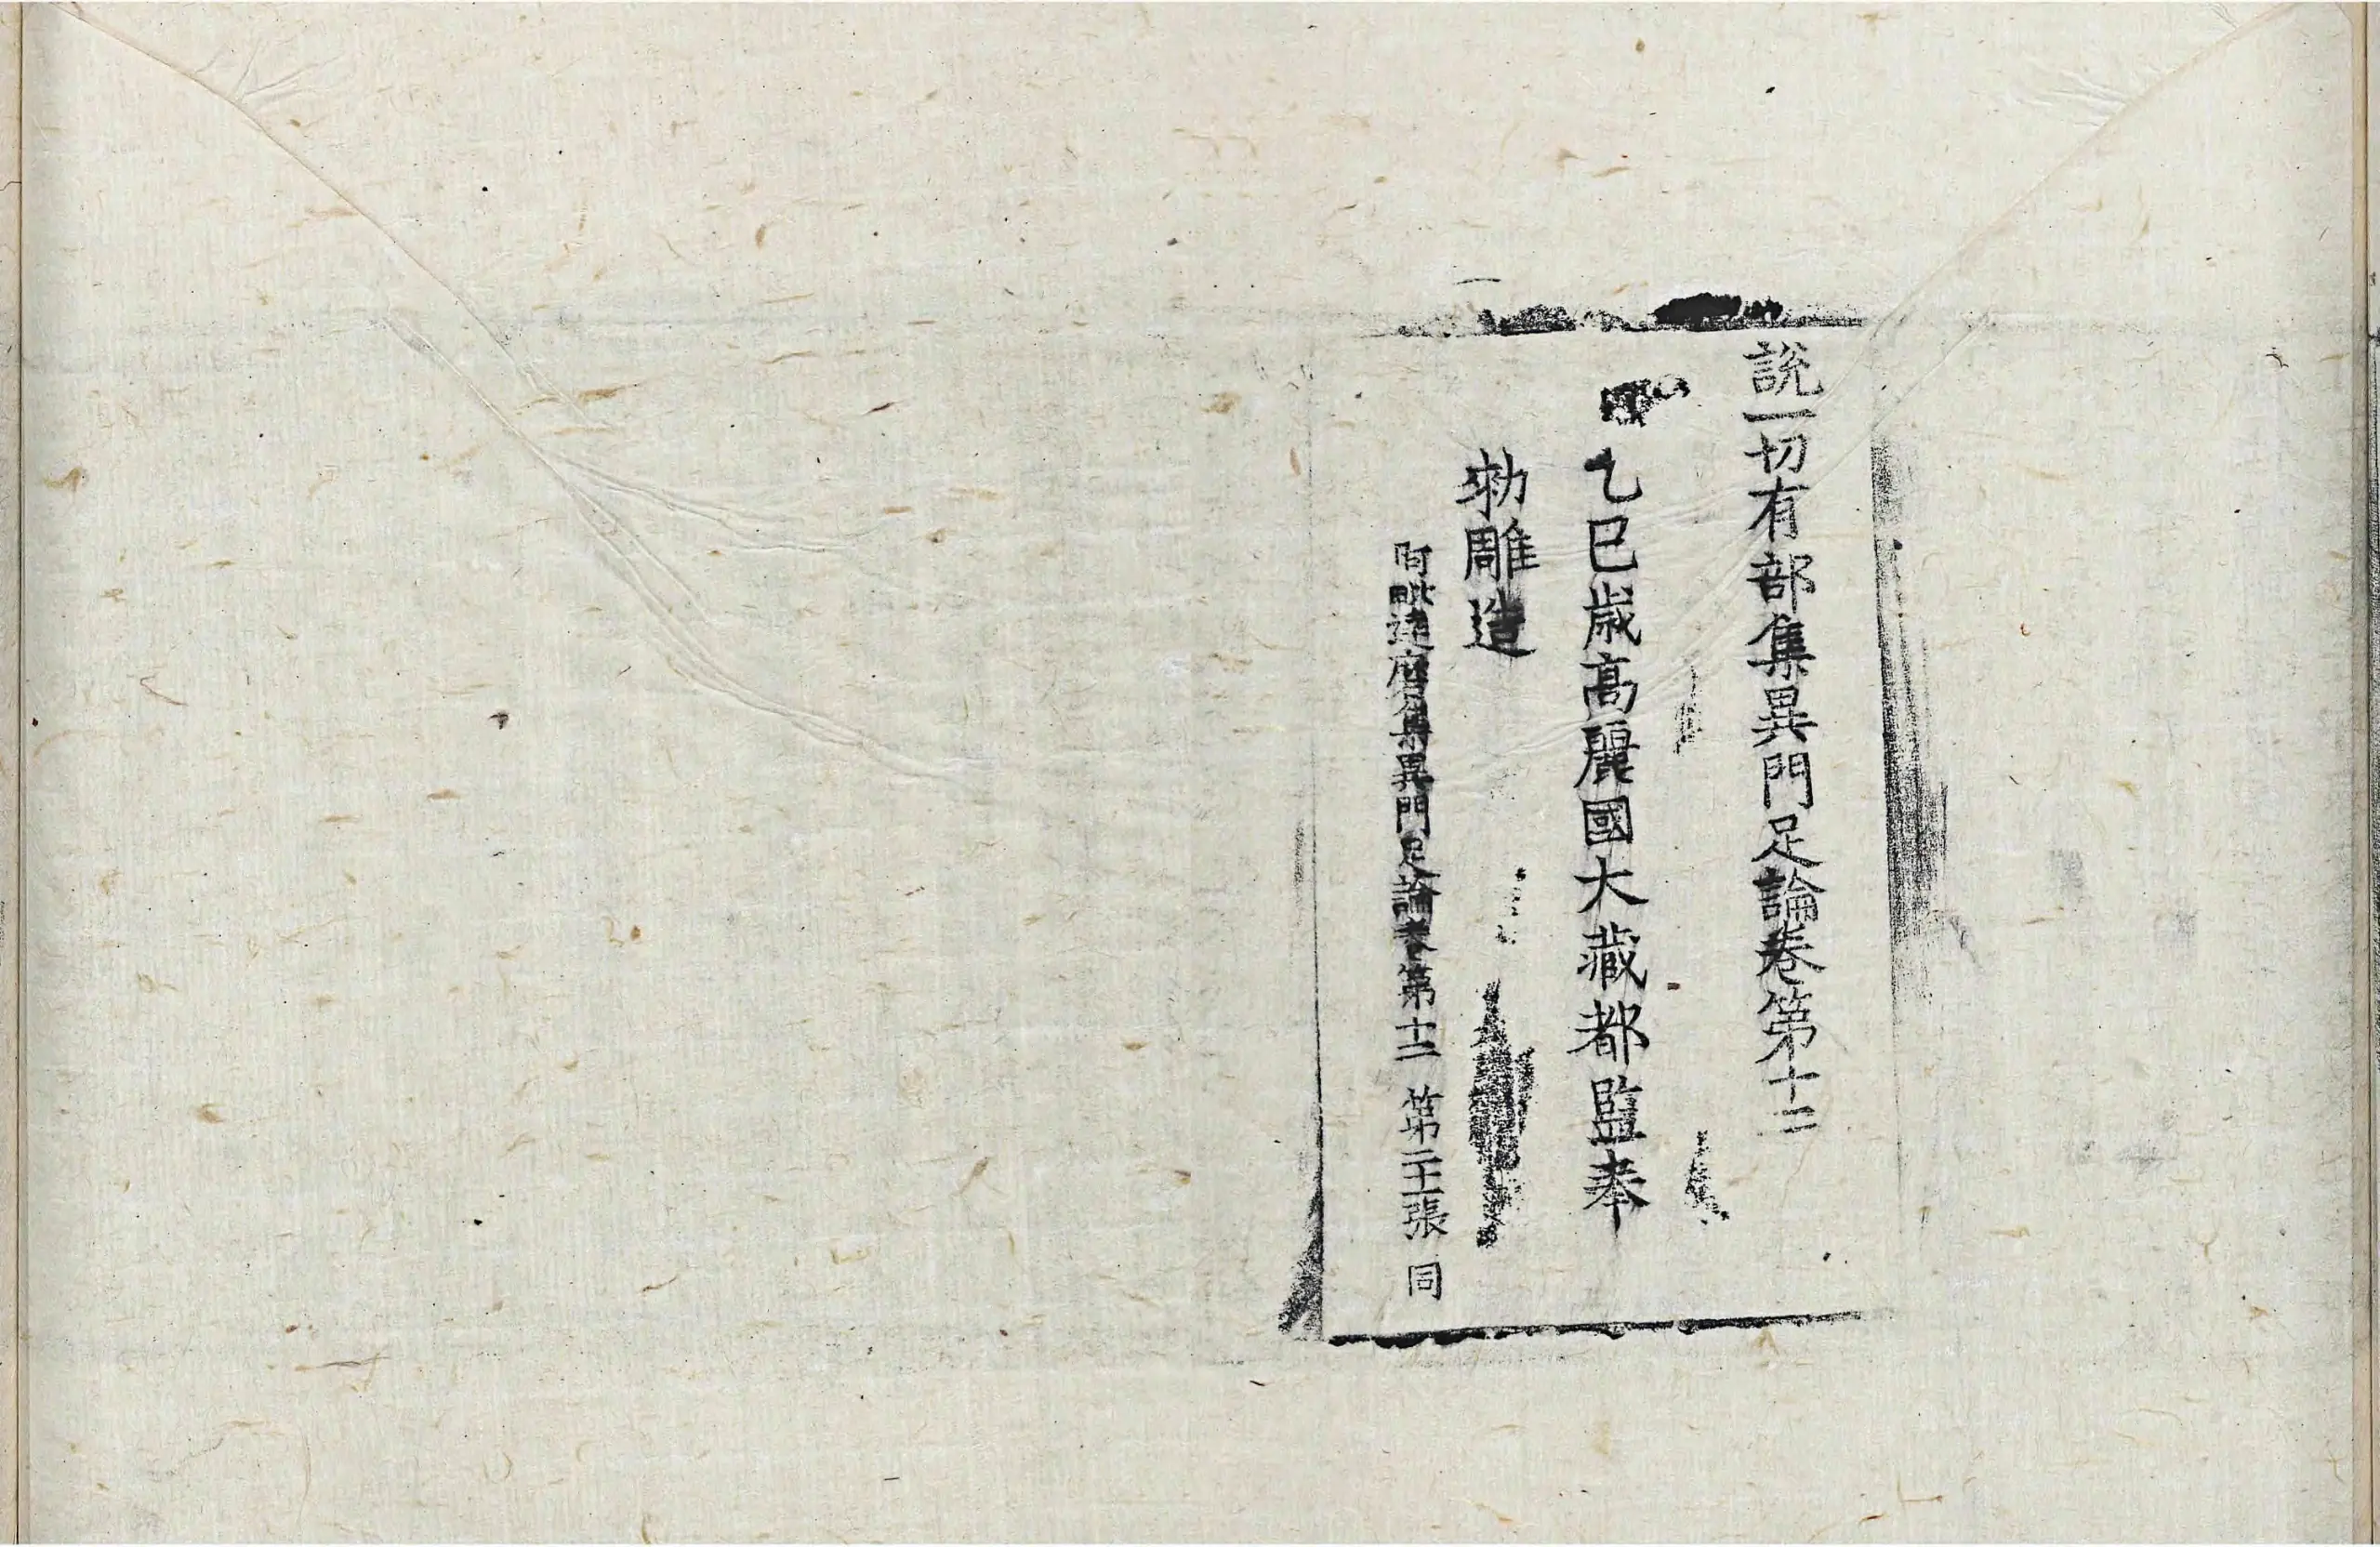 說一切有部集異門足論卷第十二
乙巳歲高麗國大藏都監奉
勑雕造
阿毗達磨集異門足論卷第十二 第二十張 同